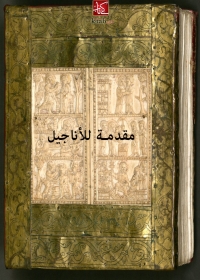 مقدمـة للأناجيل